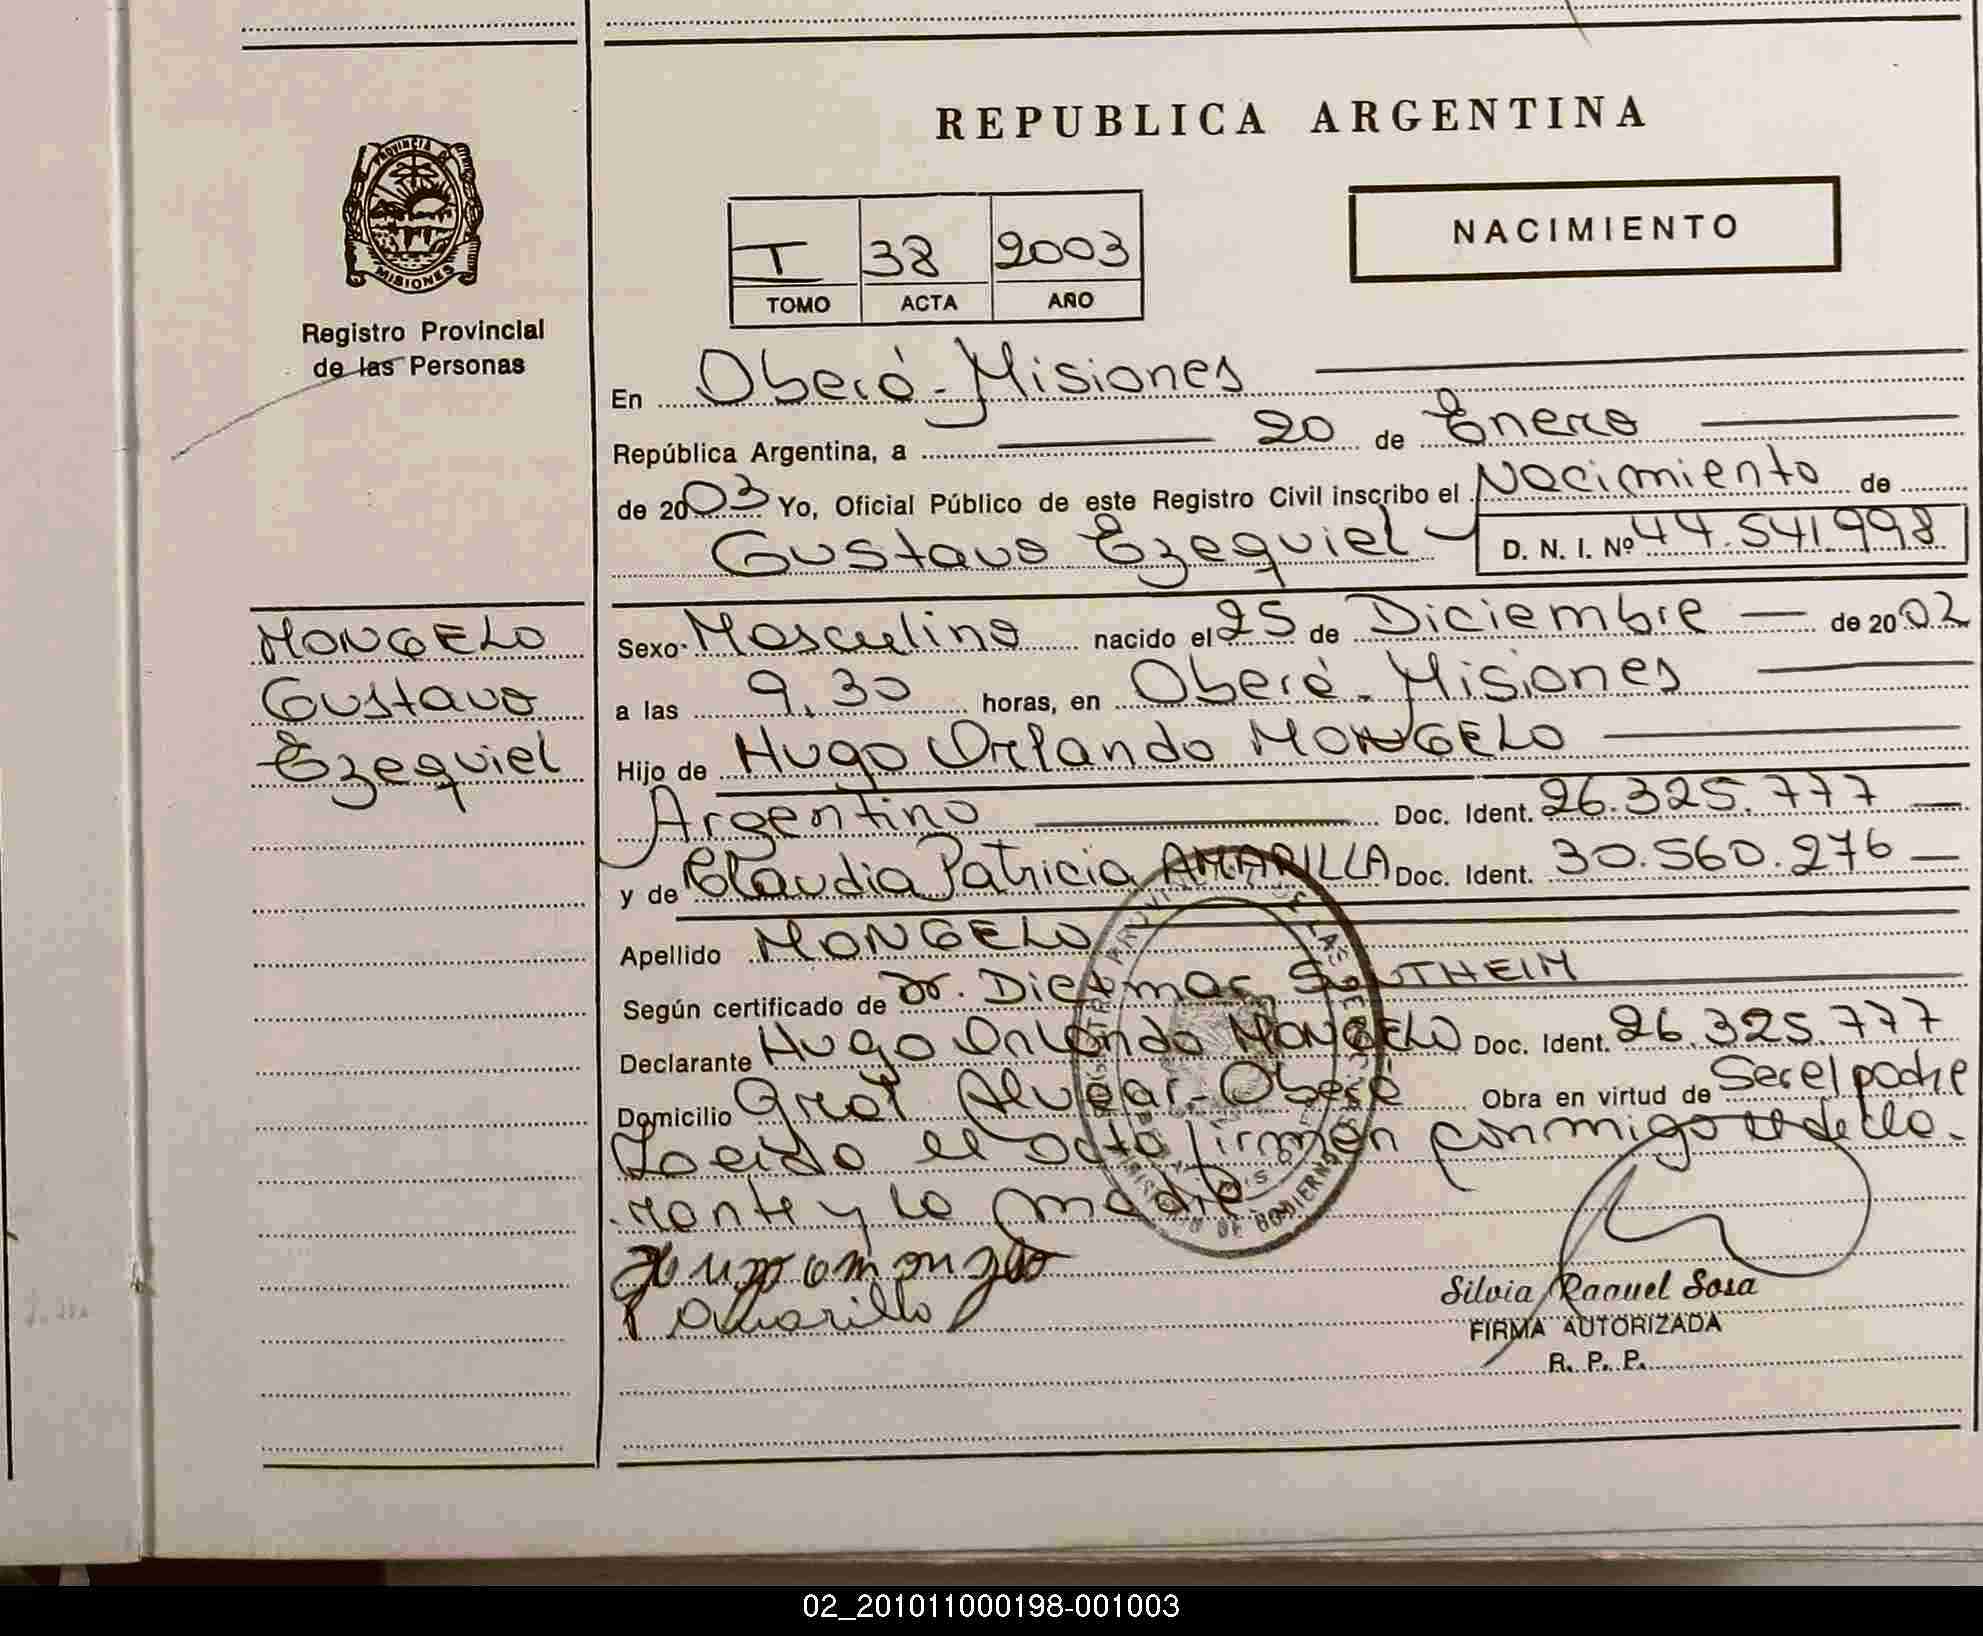 REPUBLICA ARGENTINA
NACIMIENTO
PROVINCIA DE
MISIONES
Registro Provincial
de las Personas
I 38 2003
TOMO ACTA AÑO
En Oberá - Misiones
República Argentina, a 20 de Enero
de 2003 Yo, Oficial Público de este Registro Civil inscribo el Nacimiento de
Gustavo Ezequiel D. N. I. Nº 44.541.998
MONGELO
Gustavo
Ezequiel
Sexo Masculino nacido el 25 de Diciembre de 2002
a las 9.30 horas, en Oberá - Misiones
Hijo de Hugo Orlando MONGELO
Argentino Doc. Ident. 26.325.777
y de Claudia Patricia AMARILLA Doc. Ident. 30.560.276
Apellido MONGELO
Según certificado de Dr. Dietmar
Declarante Hugo Orlando MONGELO Doc. Ident. 26.325.777
Domicilio Gral Alvear - Oberá Obra en virtud de Ser el padre
Leida el acta firman conmigo el decla-
rante y la madre
Amarilla
Silvia Raquel Sosa
FIRMA AUTORIZADA
R. P. P.
02_201011000198-001003